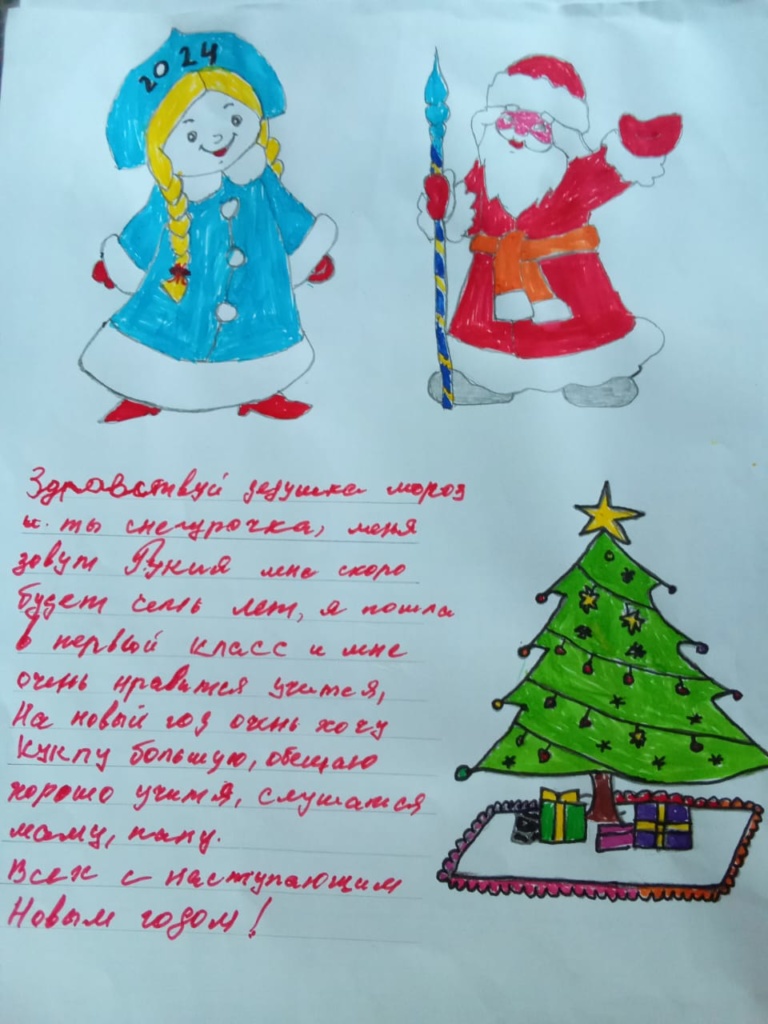 2024
Здравствуй дедушка мороз
и ты снегурочка, меня
зовут Рукия мне скоро
будет семь лет, я пошла
в первый класс и мне
очень нравится учится,
На новый год очень хочу
куклу большую, обещаю
хорошо учится, слушатся
маму, папу.
Всех с наступающим
Новым годом!